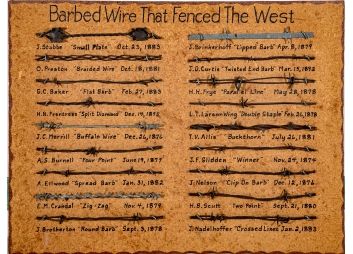 Barbed Wire That Fenced The West
J. Stubbe "Small Plate" Oct. 23, 1883
O. Preston "Braided Wire" Oct. 18, 1881
G.C. Baker Flat Barb" Feb. 27, 1883
H.B. Frentress "Split Diamond" Dec. 14, 1875
J.C. Merrill "Buffalo Wire" Dec. 26, 1876
A.S. Burnell "Four Point" June 19, 1877
A. Ellwood "Spread Barb" Jan. 31, 1882
E.M. Crandal "Zig-Zag" Nov. 4, 1879
J. Brotherton "Round Barb" Sept. 3, 1878
J. Brinkerhoff "Lipped Barb" Apr. 8, 1879
J.D. Curtis "Twisted End Barb" Mar. 13, 1892
H.H. Frye "Parallel Line" May 28, 1878
L.T. Larson Wing "Double Staple" Feb. 26, 1878
J.V. Allis "Buckthorn" July 26, 1881
J.F. Glidden "Winner" Nov. 24, 1874
J. Nelson "Clip On Barb" Dec. 12, 1876
H.B. Scutt "Two Point" Sept. 21, 1880
J. Nadelhoffer "Crossed Lines" Jan. 2, 1883